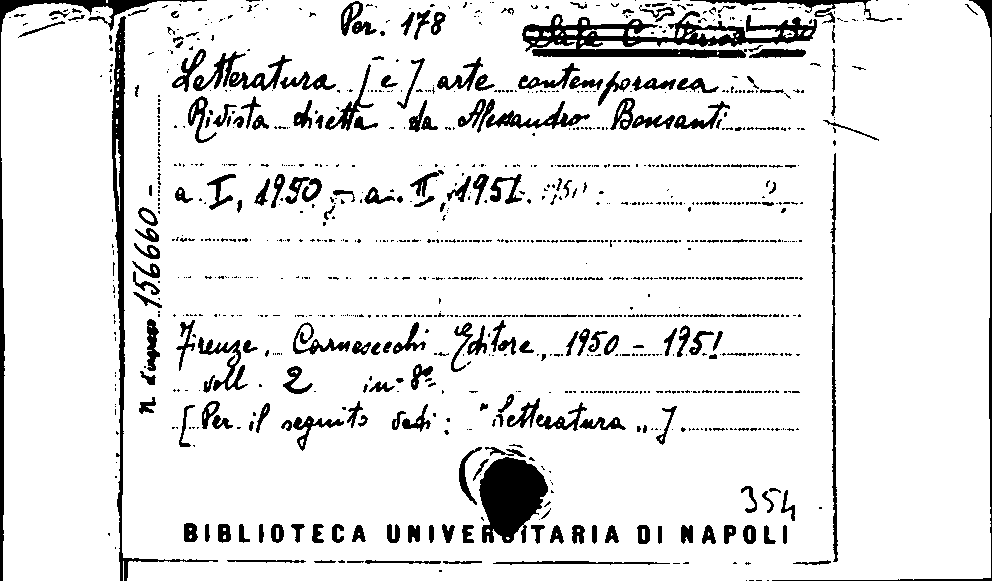 Per. 178
Sala C. Period. 130
Letteratura [e] arte contemporanea
Rivista diretta da Alessandro Bonsanti
a. I, 1950 - a. II, 1951. 1950 2.
N. d'ingresso 156660 -
Firenze, Carnesecchi Editore, 1950 - 1951
voll. 2 in-8º
[Per il seguito vedi: "Letteratura"].
354
BIBLIOTECA UNIVERSITARIA DI NAPOLI